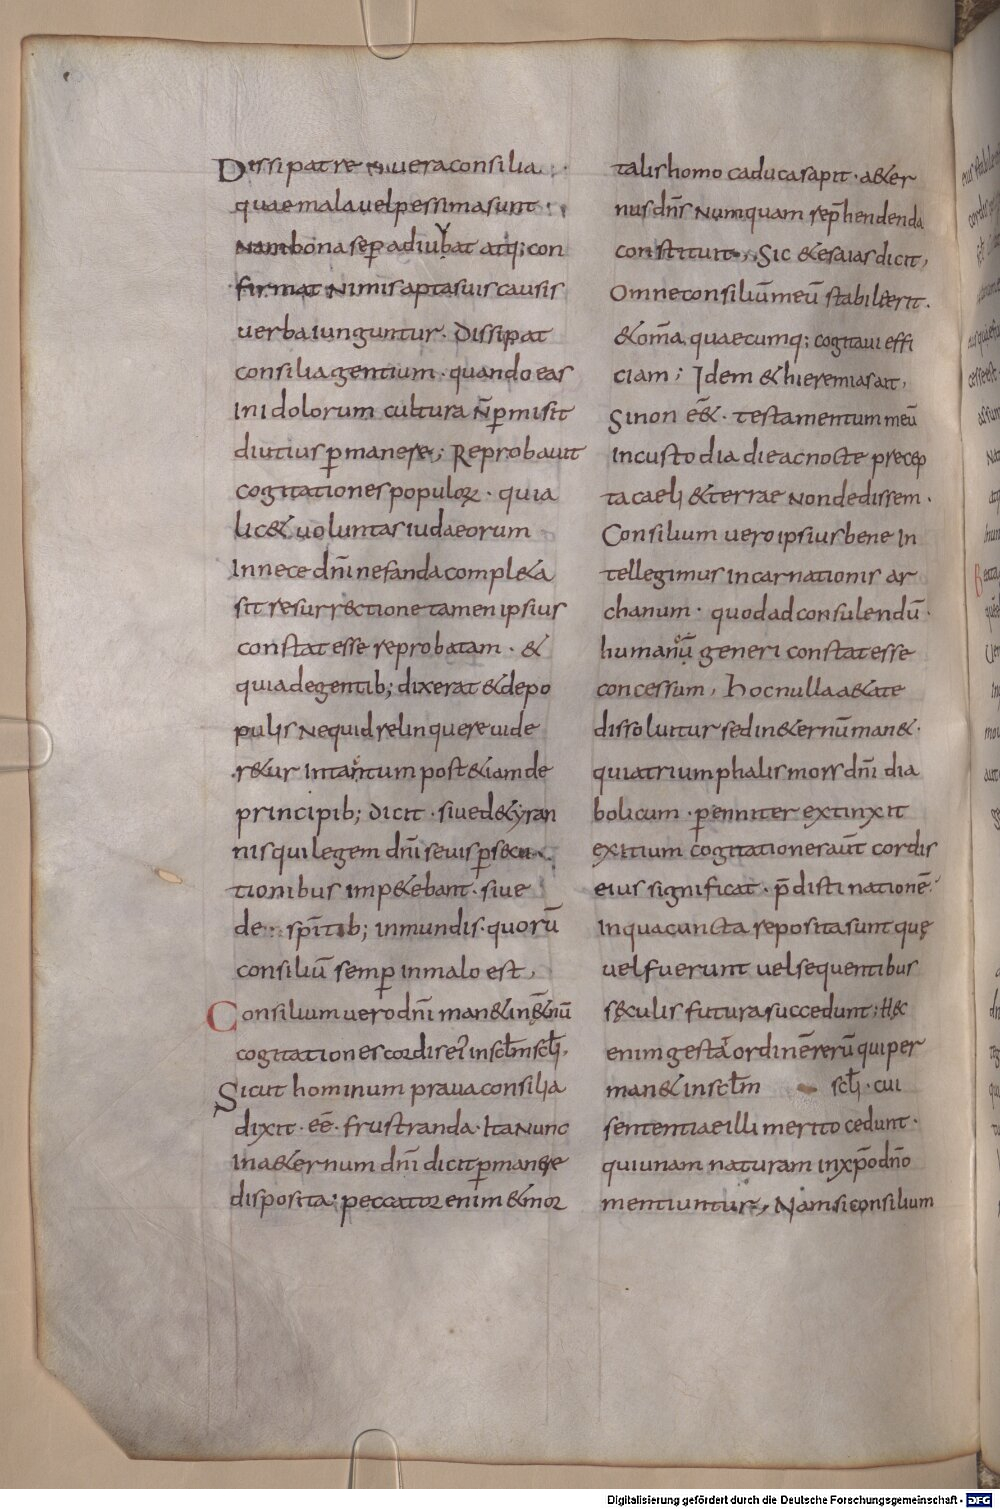 Dissipat re uera consilia
quae mala uel pessima sunt
Nam bona sēp adiubat atq; con
firmat Nimis apta suis causis
uerba iunguntur. Dissipat
consilia gentium. quando eas
In idolorum cultura n̄ pmisit
diutius pmanere; Reprobauit
cogitationes populoꝝ. quia
lic& uoluntas iudaeorum
In nece dn̄i nefanda compl&a
sit resurrectione tamen ipsius
constat esse reprobatam. &
quia de gentib; dixerat & de po
pulis Nequid relinquere uide
r&ur Intantum post &iam de
principib; dicit. siue de tyran
nis qui legem dn̄i seuis psecu
tionibus imp&ebant. siue
de sp̄itib; inmundis. quorū
consiliū semp in malo est,
Consilium uero dn̄i man& in &nū
cogitationes cordis ei' in sc̄lm sc̄li.
Sicut hominum praua consilia
dixit. eē. frustranda. Ita Nunc
In a&ernum dn̄i dicit pmanere
disposita; peccator enim & mor
talis homo caduca sapit. a&er
nus dn̄s Numquam rep̄hendenda
constituit, Sic & esaias dicit,
Omne consiliū meū stabil& erit.
& om̄a quaecumq; cogitaui effi
ciam; Idem & hieremias ait,
Si non eē&. testamentum meū
In custodia die ac nocte precep
ta caeli & terrae Non dedissem.
Consilium uero ipsius bene In
tellegimus Incarnationis ar
chanum. quod ad consulendū
humano generi constat esse
concessum, hoc nulla a&ate
dissoluitur sed in &ernū man&.
quia triumphalis mors dn̄i dia
bolicum. penniter extinxit
exitium cogitatione raūt cordis
eius significat. p̄distinationē.
In qua cuncta reposita sunt quę
uel fuerunt uel sequentibus
sęculis futura succedunt; Hęc
enim gesta ordinē rerū qui per
man& in sc̄lm sc̄li. cui
sententiae illi merito cedunt.
qui unam naturam in xp̄o dn̄o
mentiuntur, Nam si consilium
Digitalisierung gefördert durch die Deutsche Forschungsgemeinschaft - DFG